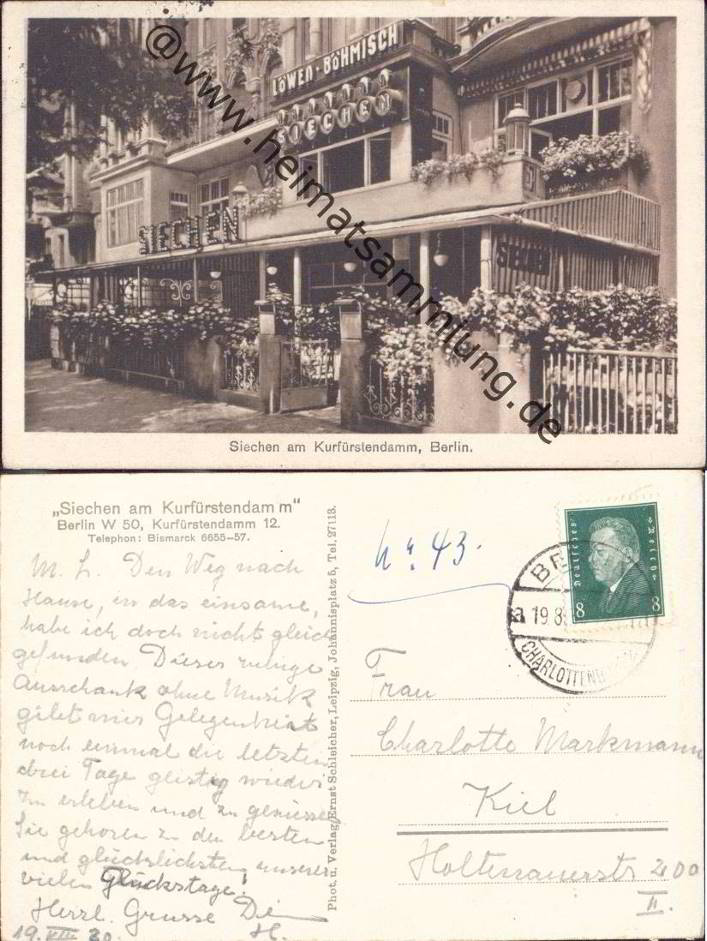 LÖWEN-BÖHMISCH
SIECHEN
SIECHEN
@www.heimatsammlung.de
Siechen am Kurfürstendamm, Berlin.
„Siechen am Kurfürstendamm"
Berlin W 50, Kurfürstendamm 12.
Telephon: Bismarck 6655-57.
M. L. Den Weg nach
Hause, in das einsame,
habe ich doch nicht gleich
gefunden. Dieser ruhige
Ausschank ohne Musik
gibt mir Gelegenheit
noch einmal die letzten
drei Tage geistig wieder
zu erleben und zu geniessen
Sie gehören zu den besten
und glücklichsten unserer
vielen Glückstage!
Herzl. Grüsse Dein
H.
19. VIII 30.
Phot. u. Verlag Ernst Schleicher, Leipzig, Johannisplatz 5, Tel. 27113.
Nr. 43.
Deutsches Reich
8 8
BE
19.8
CHARLOTTENB
Frau
Charlotte Markmann
Kiel
Holtenauerstr 200
II.